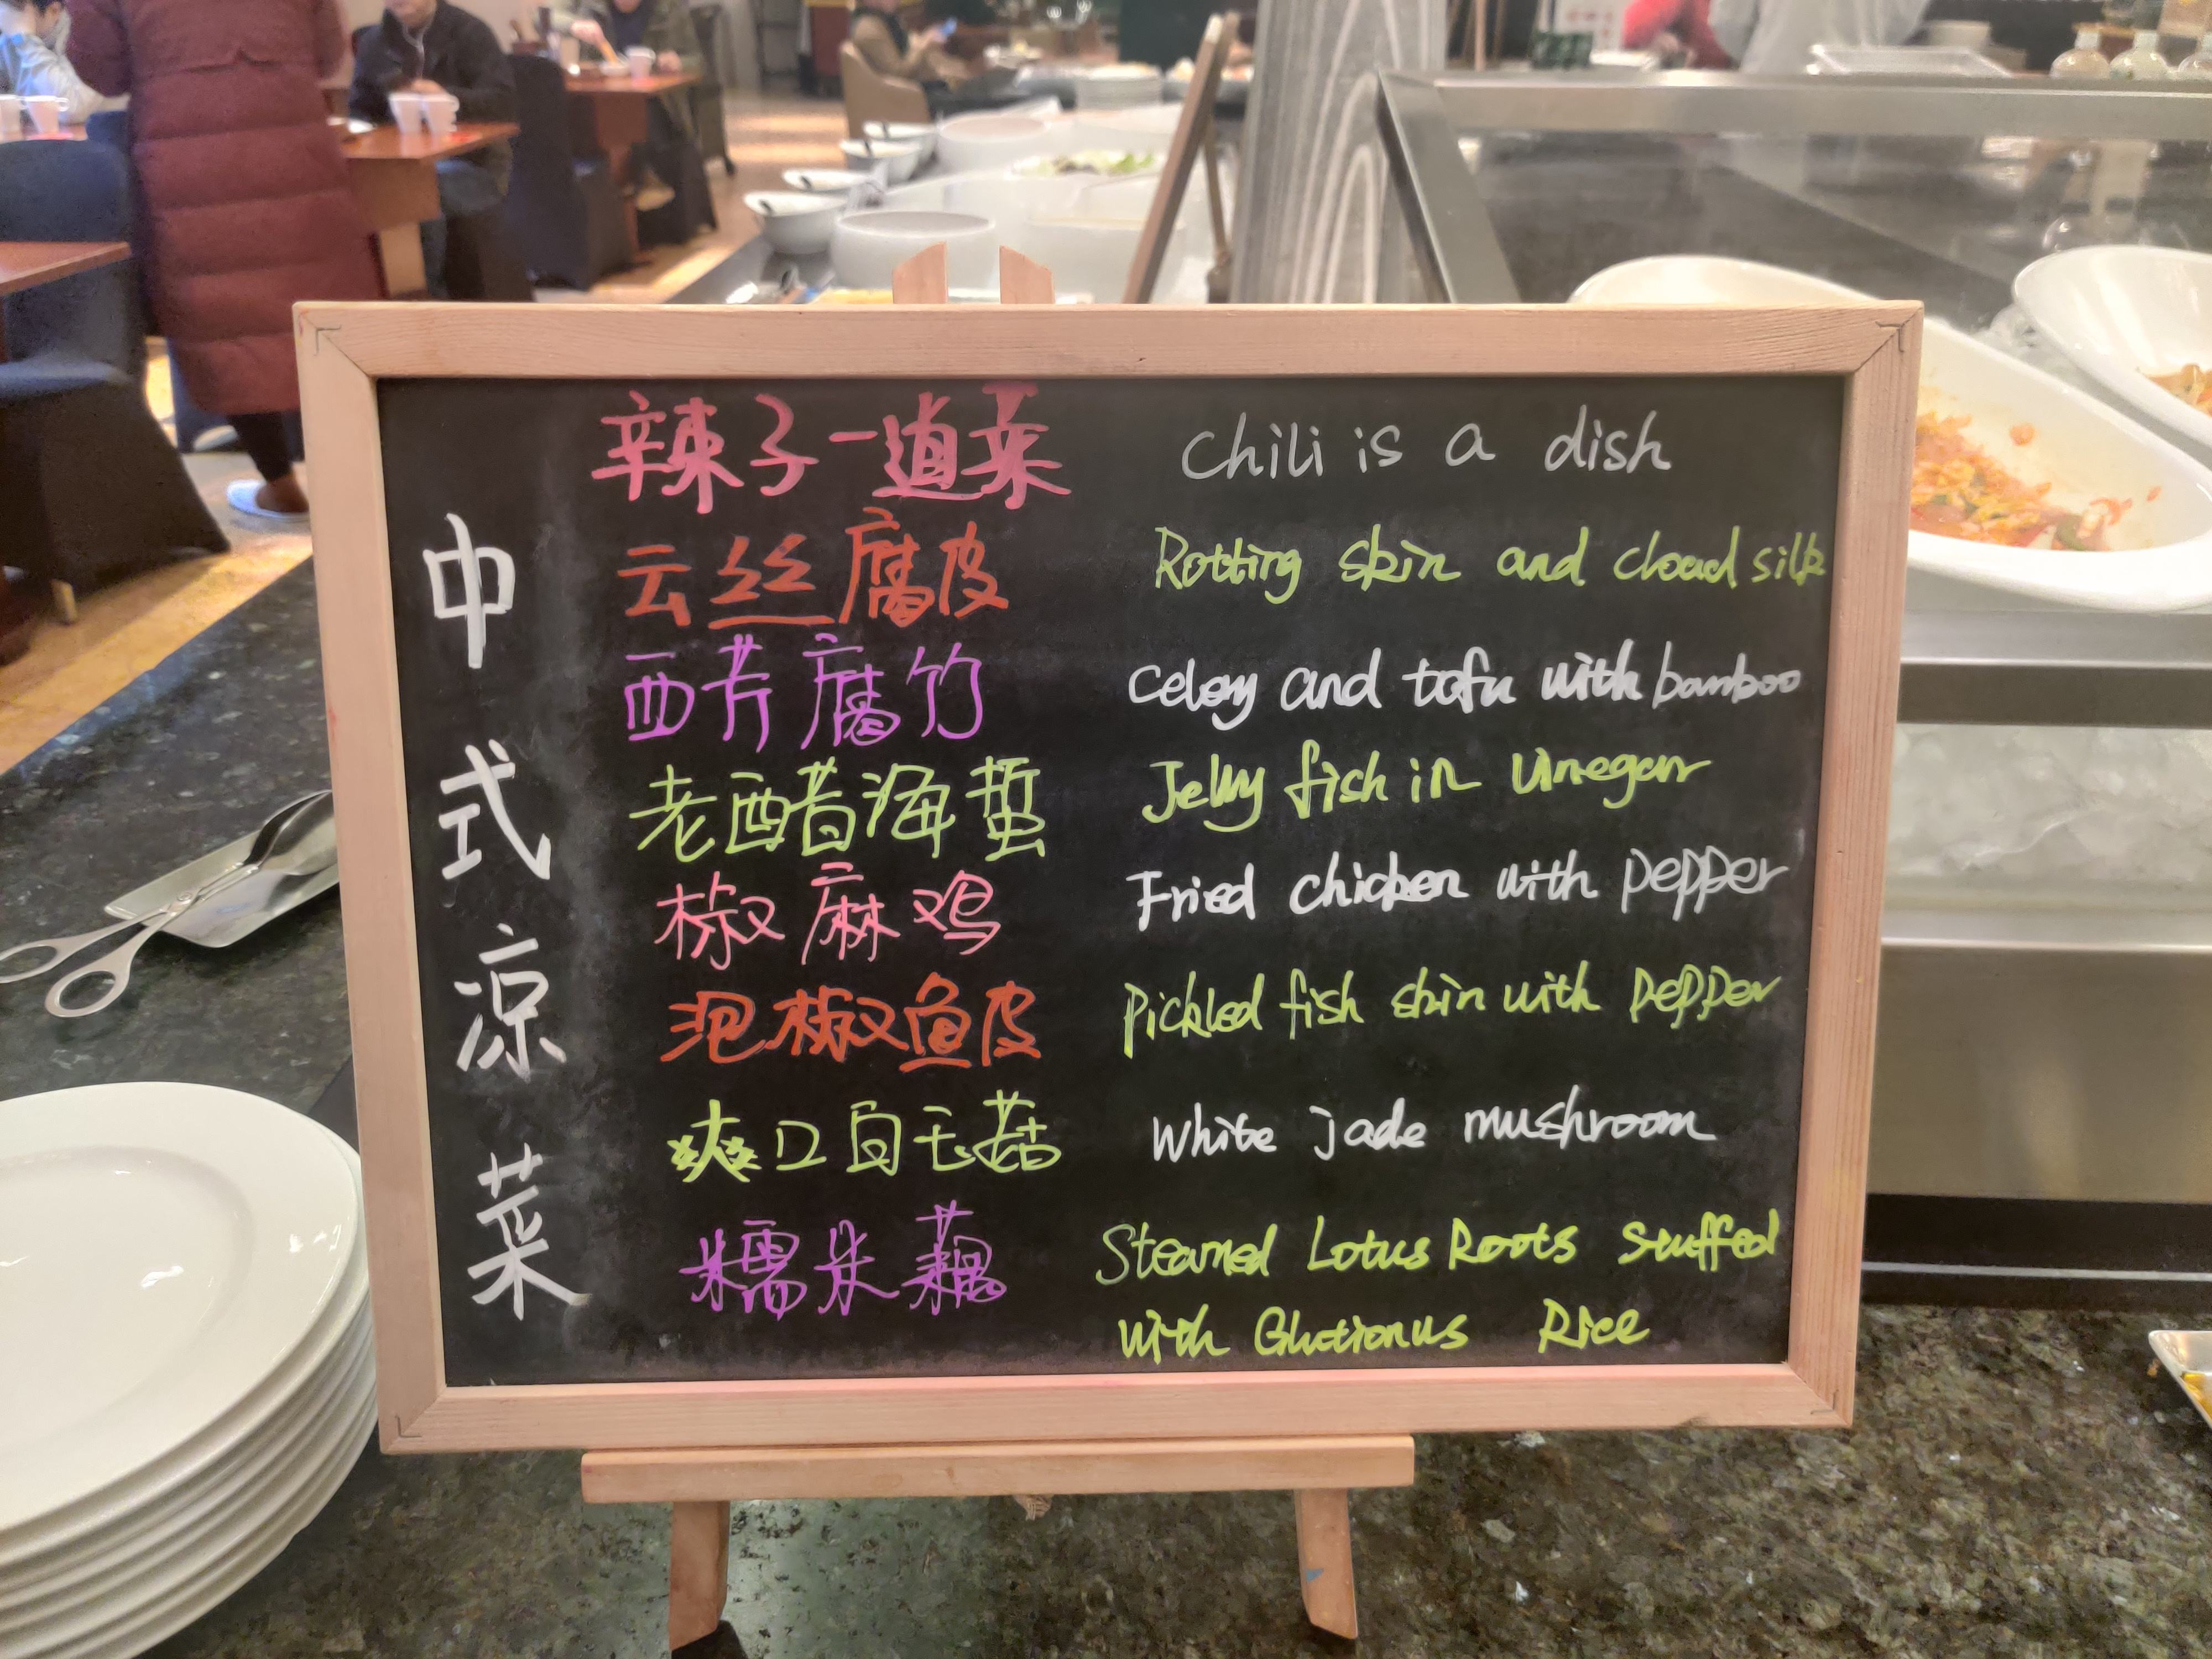 中式凉菜
辣子一道菜 Chili is a dish
云丝腐皮 Rotting skin and cloud silk
西芹腐竹 Celery and tofu with bamboo
老醋海蜇 Jelly fish in vinegar
椒麻鸡 Fried chicken with pepper
泡椒鱼皮 Pickled fish skin with pepper
爽口白玉菇 White jade mushroom
糯米藕 Steamed Lotus Roots Stuffed
with Glutionus Rice